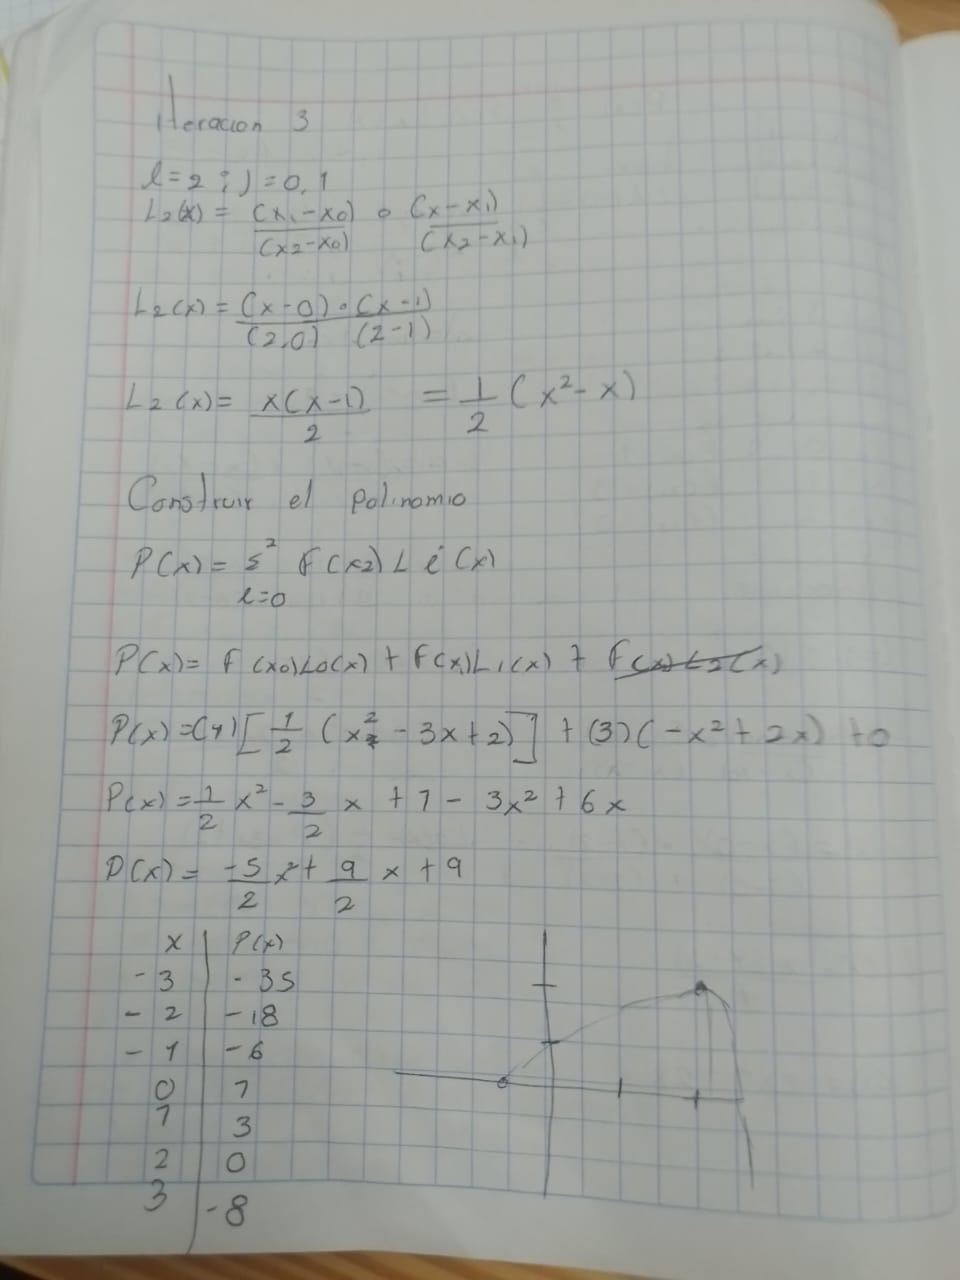 Iteracion 3
l=2 ; J=0,1
L2(x) = (x,-x0)/(x2-x0) ∘ (x-x1)/(x2-x1)
L2(x) = (x-0)·(x-1)/(2,0) (2-1)
L2(x) = x(x-1)/2 = 1/2 (x²-x)
Construir el polinomio
P(x) = Σ² l=0 F(x2) L i (x)
P(x) = F(x0)L0(x) + F(x)L1(x) +
P(x) = (1)[1/2 (x²-3x+2)] + (3)(-x²+2x) +0
P(x) = 1/2 x² - 3/2 x + 1 - 3x² + 6x
P(x) = -5/2 x² + 9/2 x + 9
x | P(x)
-3 | -35
-2 | -18
-1 | -6
0 | 1
1 | 3
2 | 0
3 | -8